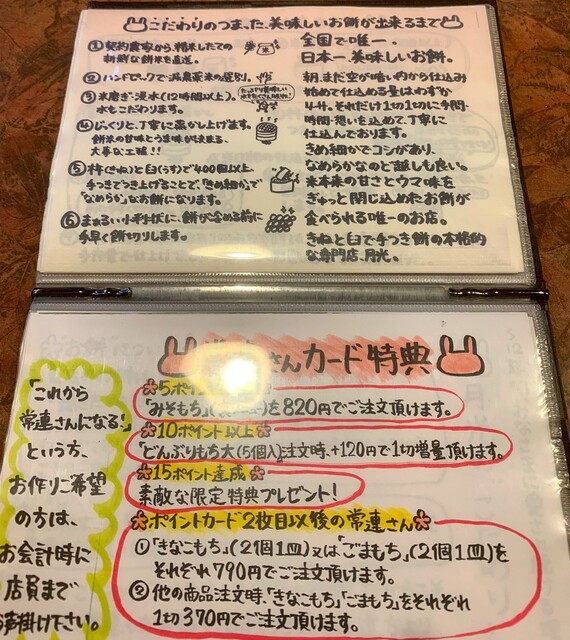 こだわりのつまった、美味しいお餅が出来るまで
① 契約農家から、精米したての
新鮮な餅米を直送。
② ハンドピックで減農薬米の選別。
③ 米磨ぎ・浸水(12時間以上)。
水もこだわります。
④ じっくりと、丁寧に蒸かし上げます。
餅米の甘味とうま味が決まる、
大事な工程!!
⑤ 杵(きね)と臼(うす)で400回以上、
手つきでつき上げることで、「きめ細か」で
「なめらか」なお餅になります。
⑥ まぁるい小判状に、餅が冷める前に
手早く餅切りします。
全国で唯一。
日本一、美味しいお餅。
朝、まだ空が暗い内から仕込み
始めて仕込める量はわずか
4升。それだけ1切1切に手間・
時間・想いを込めて、丁寧に
仕込んでおります。
きめ細かでコシがあり、
なめらかなのど越しも良い。
米本来の甘さとウマ味を
ぎゅっと閉じ込めたお餅が
食べられる唯一のお店。
きねと臼で手つき餅の本格的
な専門店、月光。
さんカード特典
「これから
常連さんになる!」
という方、
お作りご希望
の方は、
お会計時に
店員まで
お声掛け下さい。
5ポイント
「みそもち」を820円でご注文頂けます。
10ポイント以上
「どんぶりもち大(5個入)」注文時、+120円で1切増量頂けます。
15ポイント達成
素敵な限定特典プレゼント!
ポイントカード2枚目以後の常連さん
① 「きなこもち」(2個1皿)又は「ごまもち」(2個1皿)を
それぞれ790円でご注文頂けます。
② 他の商品注文時、「きなこもち」「ごまもち」をそれぞれ
1切370円でご注文頂けます。